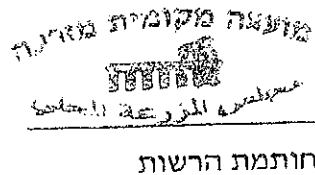 מועצה מקומית מזרעה
مجلس المزرعة المحلي
חותמת הרשות